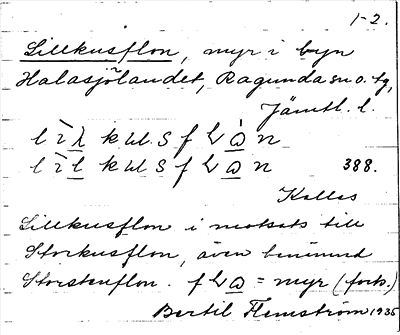 1-2.
Lillkusflon, myr i byn
Halasjölandet, Ragunda sn o. tg,
Jämtl. l.
388.
Kallas
Lillkusflon i motsats till
Storkusflon, även benämnd
= myr (fork.)
Bertil Flemström 1935